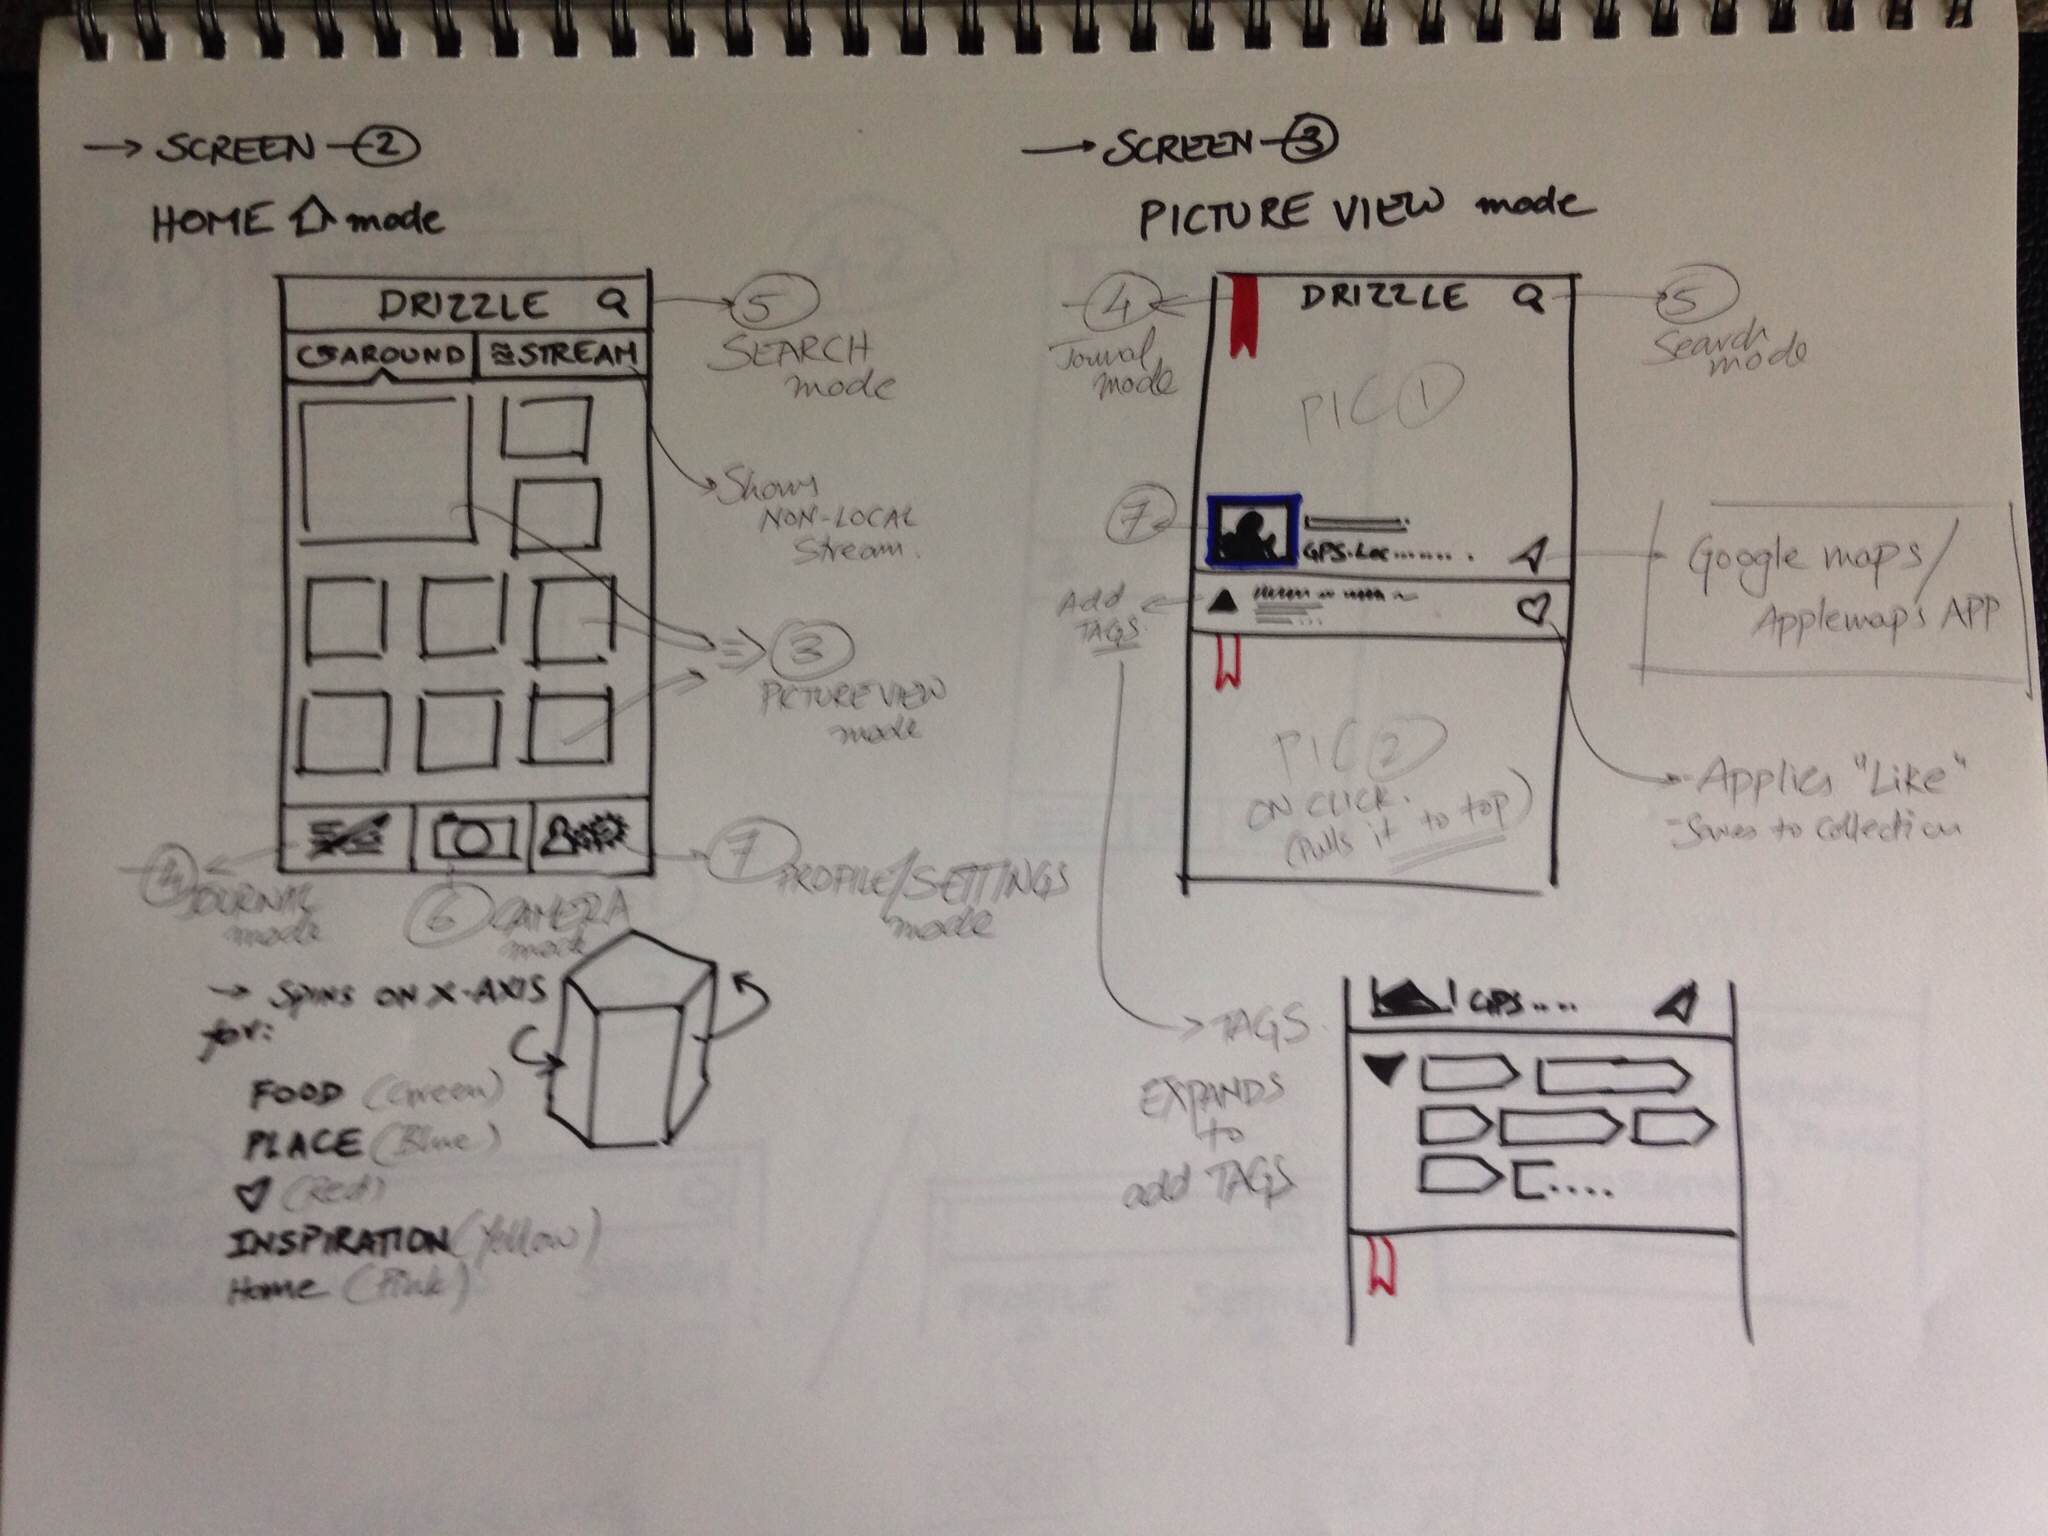 → SCREEN - 2
HOME mode
DRIZZLE
AROUND
STREAM
5
SEARCH
mode
Shows
NON-LOCAL
Stream.
3
PICTURE VIEW
mode
4
JOURNAL
mode
6 CAMERA
mode
7 PROFILE/SETTINGS
mode
→ SPINS ON X-AXIS
for:
FOOD (Green)
PLACE (Blue)
♡ (Red)
INSPIRATION (Yellow)
Home (Pink)
→ SCREEN - 3
PICTURE VIEW mode
4
Journal
mode
DRIZZLE
5
Search
mode
PIC 1
7
GPS.Loc........ .
Google maps/
Applemaps APP
Add
TAGS.
PIC 2
ON CLICK.
(Pulls it to top)
- Applies "Like"
- Saves to Collection
→ TAGS.
EXPANDS
to
add TAGS
GPS....